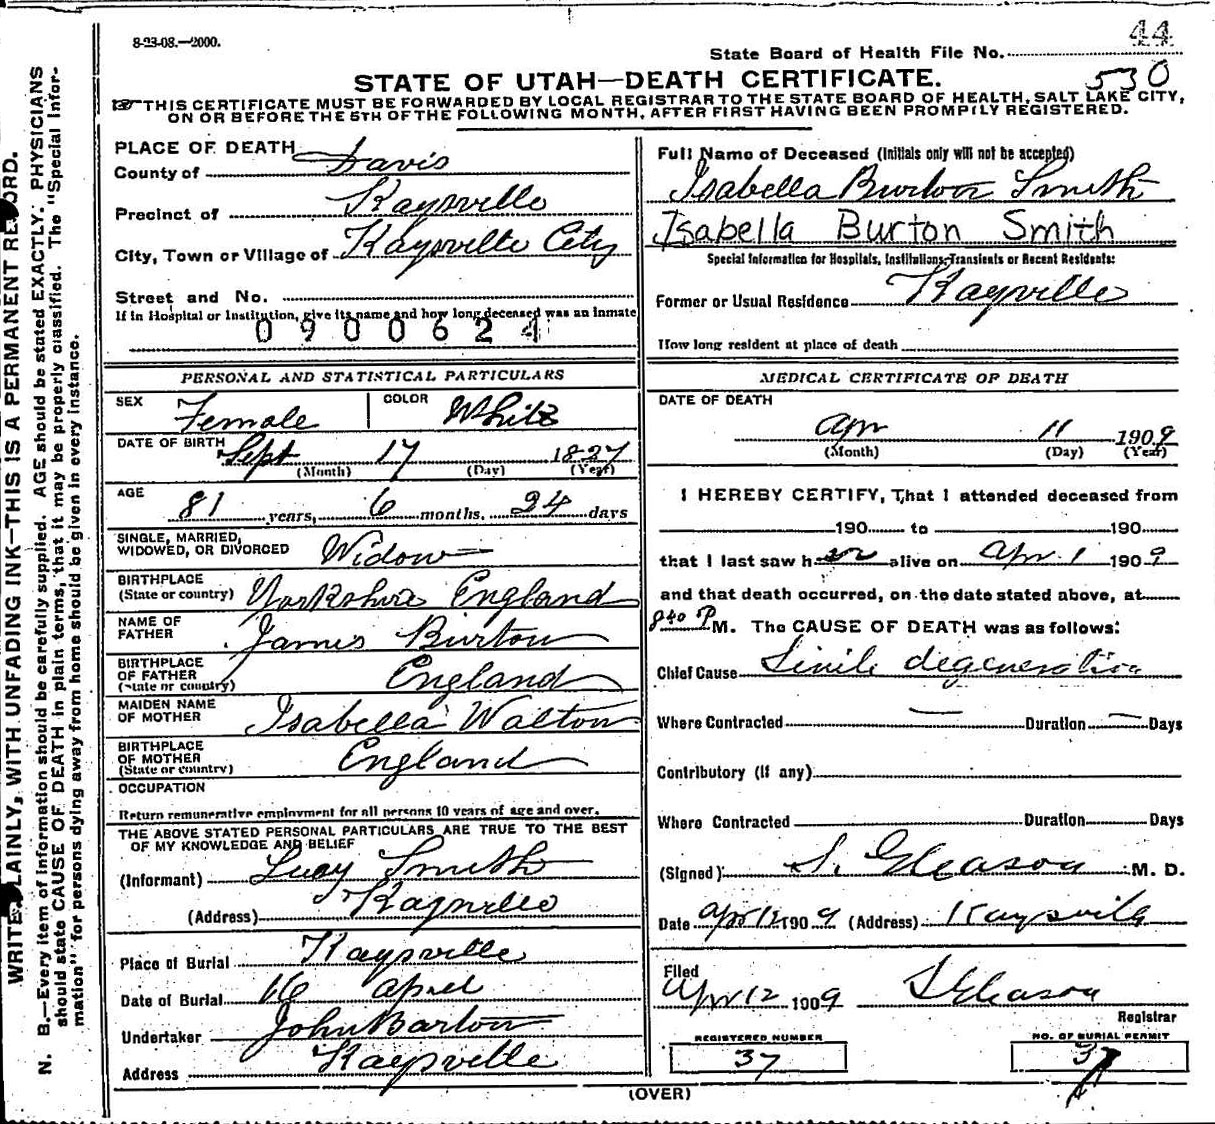 8-23-08.—2000.
44
State Board of Health File No.
530
STATE OF UTAH—DEATH CERTIFICATE.
☞THIS CERTIFICATE MUST BE FORWARDED BY LOCAL REGISTRAR TO THE STATE BOARD OF HEALTH, SALT LAKE CITY,
ON OR BEFORE THE 5TH OF THE FOLLOWING MONTH, AFTER FIRST HAVING BEEN PROMPTLY REGISTERED.
WRITE PLAINLY, WITH UNFADING INK—THIS IS A PERMANENT RECORD.
N. B.—Every item of information should be carefully supplied. AGE should be stated EXACTLY. PHYSICIANS
should state CAUSE OF DEATH in plain terms, that it may be properly classified. The "Special Infor-
mation" for persons dying away from home should be given in every instance.
PLACE OF DEATH
County of Davis
Precinct of Kaysville
City, Town or Village of Kaysville City
Street and No.
If in Hospital or Institution, give its name and how long deceased was an inmate
0900624
PERSONAL AND STATISTICAL PARTICULARS
SEX Female COLOR White
DATE OF BIRTH Sept 17 1827
(Month) (Day) (Year)
AGE 81 years, 6 months, 24 days
SINGLE, MARRIED,
WIDOWED, OR DIVORCED Widow
BIRTHPLACE
(State or country) Yorkshire England
NAME OF
FATHER James Burton
BIRTHPLACE
OF FATHER England
(State or country)
MAIDEN NAME
OF MOTHER Isabella Walton
BIRTHPLACE
OF MOTHER England
(State or country)
OCCUPATION
Return remunerative employment for all persons 10 years of age and over.
THE ABOVE STATED PERSONAL PARTICULARS ARE TRUE TO THE BEST
OF MY KNOWLEDGE AND BELIEF
(Informant) Lucy Smith
(Address) Kaysville
Place of Burial Kaysville
Date of Burial 16 April
Undertaker John Barton
Address Kaysville
Full Name of Deceased (Initials only will not be accepted)
Isabella Burton Smith
Isabella Burton Smith
Special Information for Hospitals, Institutions, Transients or Recent Residents:
Former or Usual Residence Kaysville
How long resident at place of death
MEDICAL CERTIFICATE OF DEATH
DATE OF DEATH
Apr 11 1909
(Month) (Day) (Year)
I HEREBY CERTIFY, That I attended deceased from
190 to 190
that I last saw her alive on Apr 1 1909
and that death occurred, on the date stated above, at
840 P M. The CAUSE OF DEATH was as follows:
Chief Cause Sinile degeneration
Where Contracted — Duration — Days
Contributory (if any)
Where Contracted Duration Days
(Signed) S. Gleason M. D.
Date Apr 12 1909 (Address) Kaysville
Filed
Apr 12 1909 S Gleason
Registrar
REGISTERED NUMBER
37
NO. OF BURIAL PERMIT
37
(OVER)